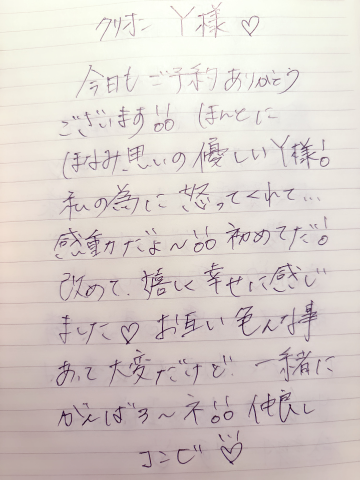 クリオン Y様♡
今日も ご予約 ありがとう
ございます!! ほんとに
ほなみ思いの優しいY様!
私の為に 怒ってくれて…
感動だよ〜!! 初めてだ!
改めて、嬉しく幸せに感じ
ました♡ お互い 色んな事
あって 大変だけど 一緒に
がんばろ〜ネ!! 仲良し
コンビ!! ♡